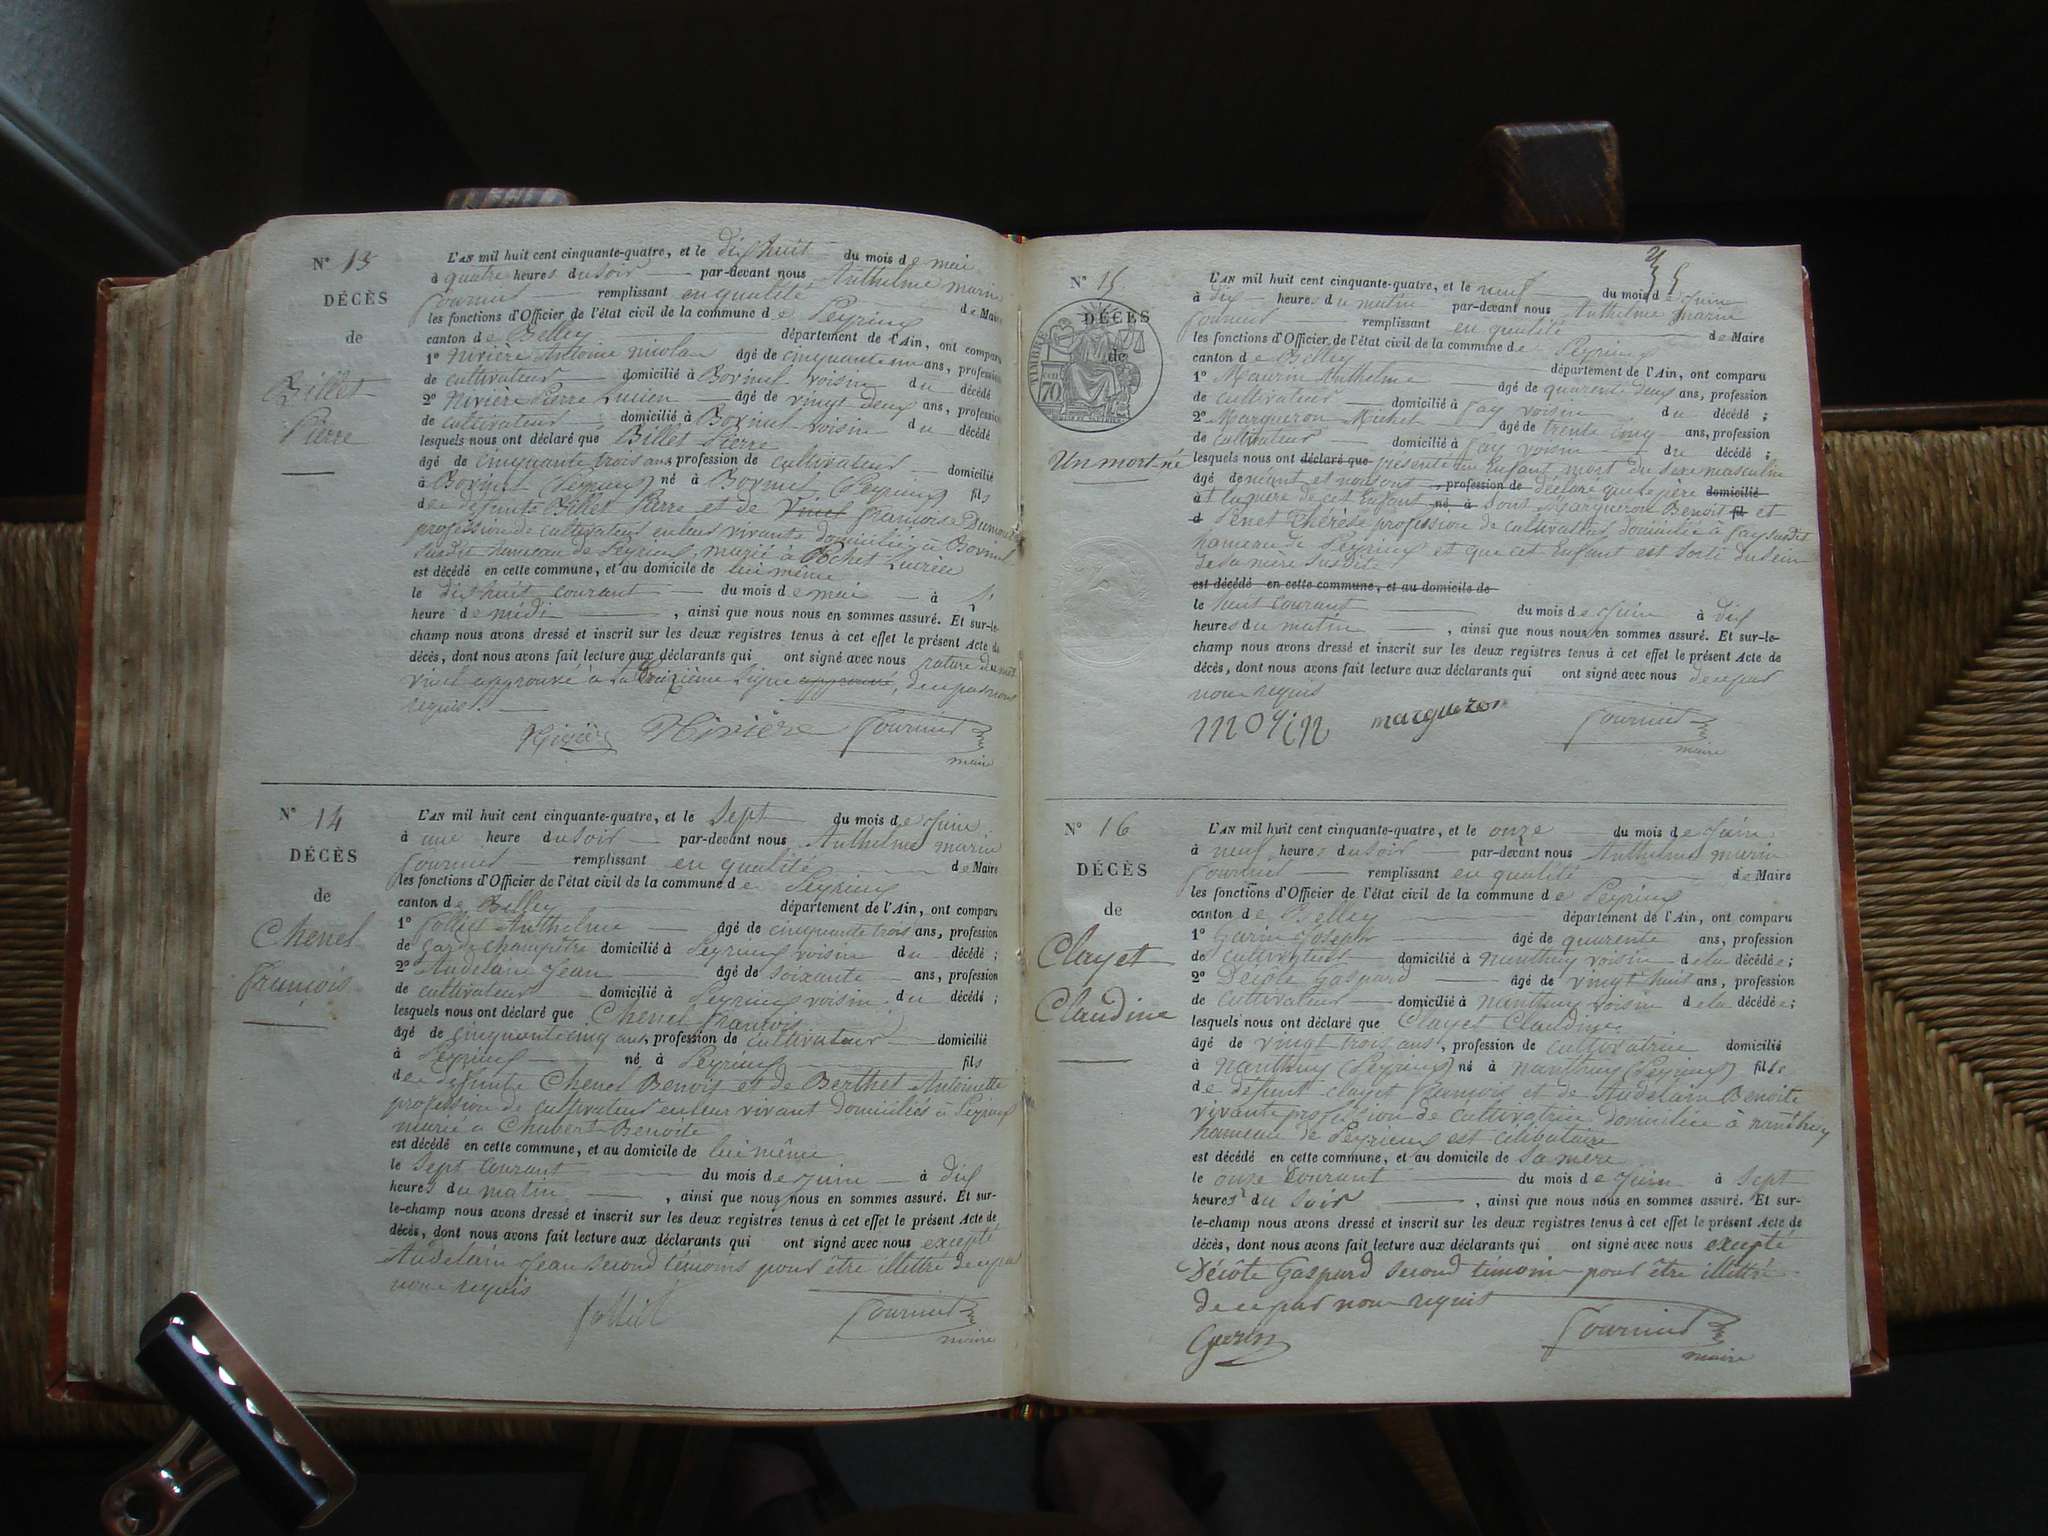 N° 13
DÉCÈS
de
Billet
Pierre
L'AN mil huit cent cinquante-quatre, et le dix huit du mois de mai
à quatre heures du soir par-devant nous Anthelme marin
Fournier remplissant en qualité de Maire
les fonctions d'Officier de l'état civil de la commune de Peyrieux
canton de Belley département de l'Ain, ont comparu
1° Nivière Antoine Nicolas âgé de cinquante un ans, profession
de cultivateur domicilié à voisin du décédé
2° Nivière Pierre Lucien âgé de vingt deux ans, profession
de cultivateur domicilié à voisin du décédé
lesquels nous ont déclaré que Billet Pierre
âgé de cinquante trois ans, profession de cultivateur domicilié
à (Peyrieux) né à (Peyrieux) fils
de défunts Billet Pierre et de françoise
profession de cultivateur en leur vivante domiciliés à
susdit hameau de Peyrieux, marié à Pochet
est décédé en cette commune, et au domicile de lui même
le dix huit courant du mois de mai à
heure de midi , ainsi que nous nous en sommes assuré. Et sur-le-
champ nous avons dressé et inscrit sur les deux registres tenus à cet effet le présent Acte de
décès, dont nous avons fait lecture aux déclarants qui ont signé avec nous rature du mot
approuvé à la ligne approuvé, de ce par nous
requis.
Nivière Fournier
maire
N° 14
DÉCÈS
de
Chenet
François
L'AN mil huit cent cinquante-quatre, et le sept du mois de Juin
à une heure du soir par-devant nous Anthelme marin
Fournier remplissant en qualité de Maire
les fonctions d'Officier de l'état civil de la commune de Peyrieux
canton de Belley département de l'Ain, ont comparu
1° Anthelme âgé de cinquante trois ans, profession
de Garde champêtre domicilié à Peyrieux voisin du décédé ;
2° Audelain Jean âgé de soixante ans, profession
de cultivateur domicilié à Peyrieux voisin du décédé ;
lesquels nous ont déclaré que Chenet françois
âgé de cinquante cinq ans, profession de cultivateur domicilié
à Peyrieux né à Peyrieux fils
de défunts Chenet Benoit et de Berthet Antoinette
profession de cultivateur en leur vivant domiciliés à Peyrieux
marié à Chabert Benoite
est décédé en cette commune, et au domicile de lui même
le sept courant du mois de Juin à dix
heures du matin , ainsi que nous nous en sommes assuré. Et sur-
le-champ nous avons dressé et inscrit sur les deux registres tenus à cet effet le présent Acte de
décès, dont nous avons fait lecture aux déclarants qui ont signé avec nous excepté
Audelain Jean second témoins pour être illettré de ce par
nous requis
Fournier
maire
N° 15
TIMBRE
70
DÉCÈS
de
Un mort-né
L'AN mil huit cent cinquante-quatre, et le neuf du mois de Juin
à dix heures du matin par-devant nous Anthelme marin
Fournier remplissant en qualité de Maire
les fonctions d'Officier de l'état civil de la commune de Peyrieux
canton de Belley département de l'Ain, ont comparu
1° Maurin Anthelme âgé de quarante deux ans, profession
de cultivateur domicilié à Fay voisin du décédé ;
2° Margueron Michel âgé de trente cinq ans, profession
de cultivateur domicilié à Fay voisin du décédé ;
lesquels nous ont déclaré que présenté un Enfant mort du sexe masculin
âgé de néant et nous ont , profession de déclaré que le père domicilié
à et la mère de cet Enfant né à sont Margueron Benoit fil et
d Penet Thérèse profession de cultivateurs domiciliés à Fay susdit
hameau de Peyrieux et que cet Enfant est sorti du sein
de sa mère susdite
est décédé en cette commune, et au domicile de
le huit courant du mois de Juin à dix
heures du matin , ainsi que nous nous en sommes assuré. Et sur-le-
champ nous avons dressé et inscrit sur les deux registres tenus à cet effet le présent Acte de
décès, dont nous avons fait lecture aux déclarants qui ont signé avec nous de ce par
nous requis
morin margueron Fournier
maire
N° 16
DÉCÈS
de
Clayet
Claudine
L'AN mil huit cent cinquante-quatre, et le onze du mois de Juin
à neuf heures du soir par-devant nous Anthelme marin
Fournier remplissant en qualité de Maire
les fonctions d'Officier de l'état civil de la commune de Peyrieux
canton de Belley département de l'Ain, ont comparu
1° Garin Joseph âgé de quarante ans, profession
de cultivateur domicilié à Nanthuy voisin de la décédée ;
2° Décôte Gaspard âgé de vingt huit ans, profession
de cultivateur domicilié à Nanthuy voisin de la décédée ;
lesquels nous ont déclaré que Clayet Claudine
âgé de vingt trois ans, profession de cultivatrice domicilié
à Nanthuy (Peyrieux) né à Nanthuy (Peyrieux) fille
de défunt Clayet françois et de Audelain Benoite
vivante profession de cultivatrice domiciliée à nanthuy
hameau de Peyrieux est célibataire
est décédé en cette commune, et au domicile de sa mère
le onze courant du mois de Juin à sept
heures du soir , ainsi que nous nous en sommes assuré. Et sur-
le-champ nous avons dressé et inscrit sur les deux registres tenus à cet effet le présent Acte de
décès, dont nous avons fait lecture aux déclarants qui ont signé avec nous excepté
Décôte Gaspard second témoin pour être illettré
de ce par nous requis
Guerin Fournier
maire